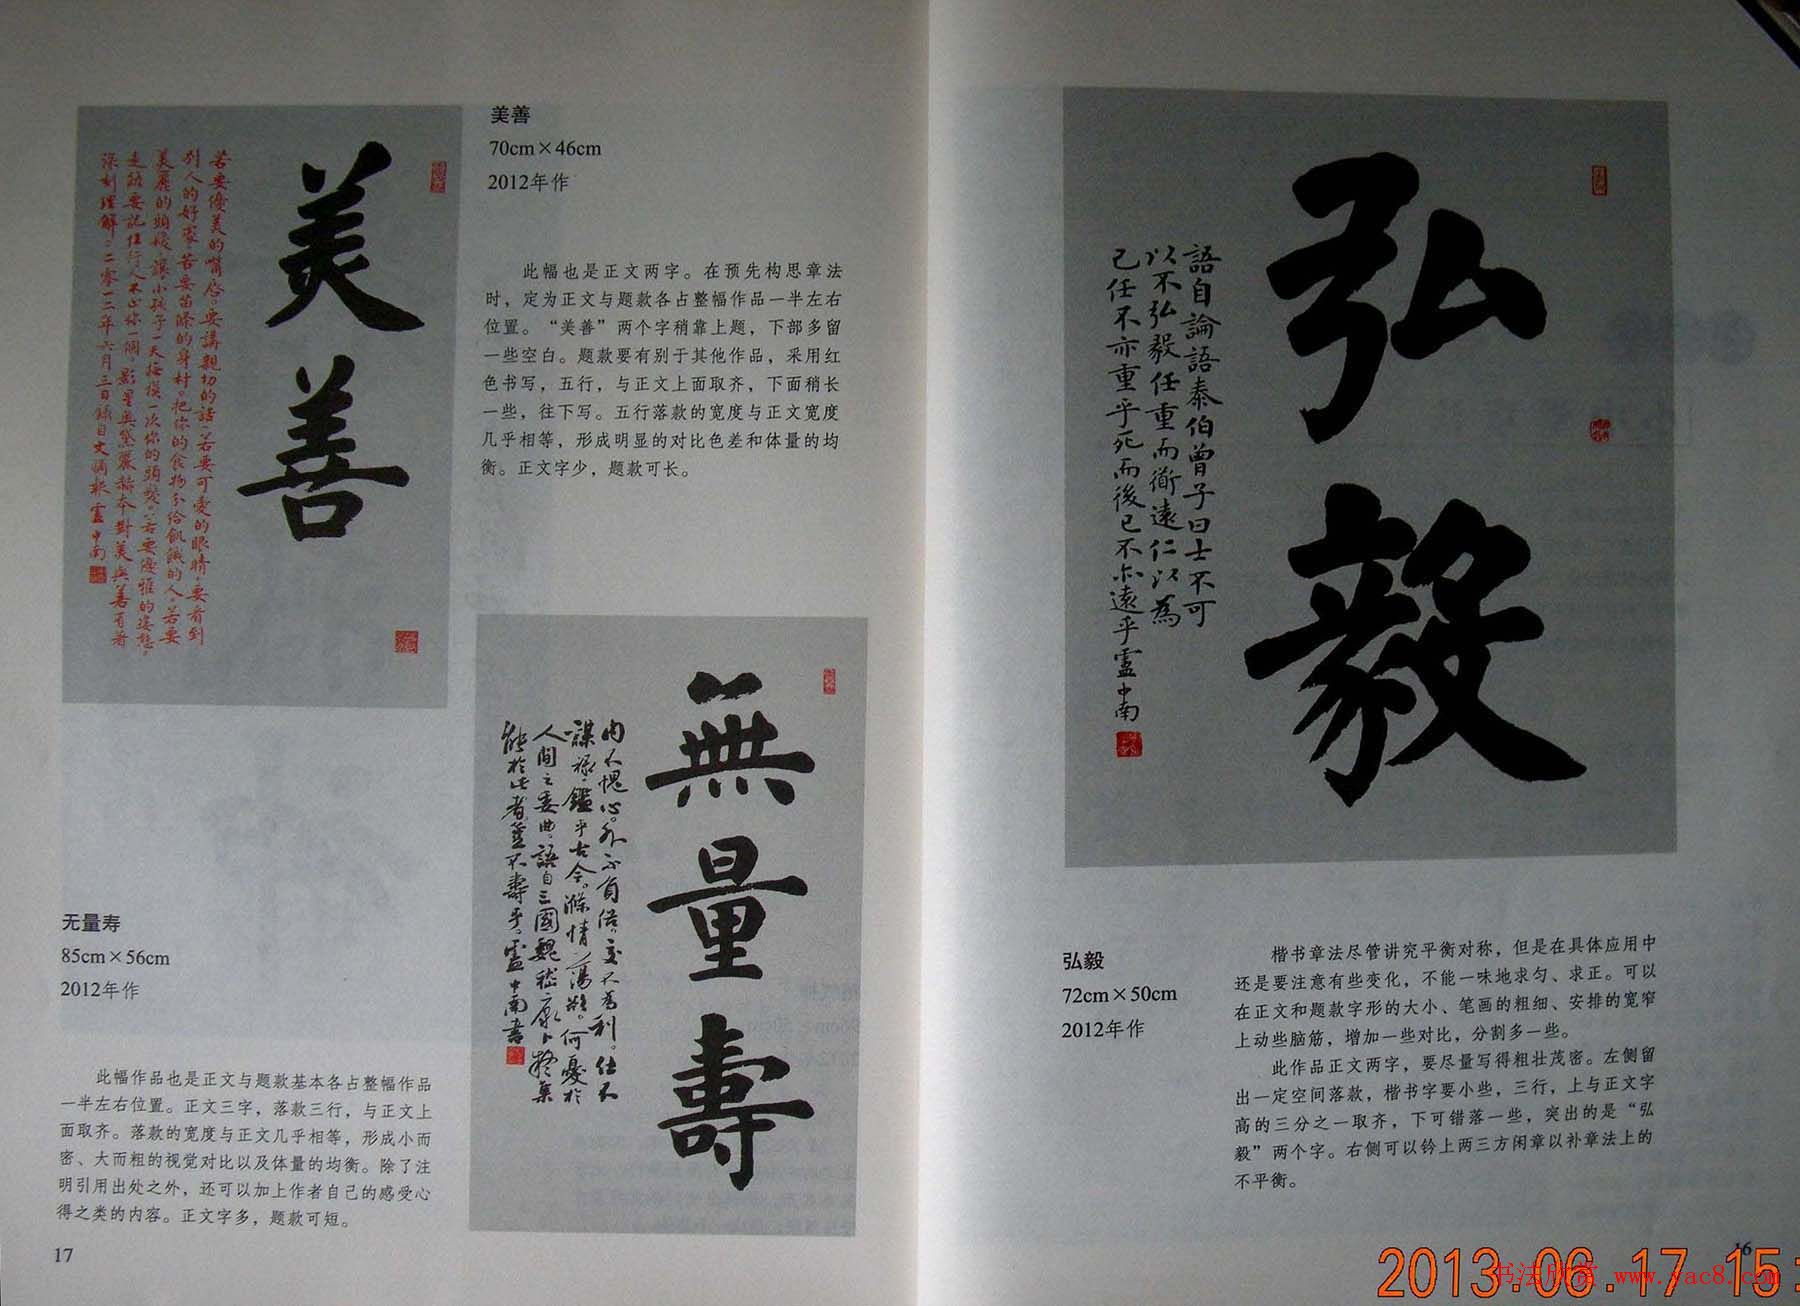 弘
毅
語自論語泰伯曾子曰士不可
以不弘毅任重而衜遠仁以為
己任不亦重乎死而後已不亦遠乎盧中南
弘毅
72cm×50cm
2012年作
楷书章法尽管讲究平衡对称，但是在具体应用中
还是要注意有些变化，不能一味地求匀、求正。可以
在正文和题款字形的大小、笔画的粗细、安排的宽窄
上动些脑筋，增加一些对比，分割多一些。
此作品正文两字，要尽量写得粗壮茂密。左侧留
出一定空间落款，楷书字要小些，三行，上与正文字
高的三分之一取齐，下可错落一些，突出的是“弘
毅”两个字。右侧可以钤上两三方闲章以补章法上的
不平衡。
16
美
善
若要優美的嘴唇。要講親切的話。若要可愛的眼睛。要看到
别人的好處。若要苗條的身材。把你的食物分給飢餓的人。若要
美麗的頭髮。讓小孩子一天撫摸一次你的頭髮。若要優雅的姿態。
走路要記住行人不止你一個。影星奥黛麗赫本對美與善有着
深刻理解。二零一二年六月三日錄自文摘報盧中南
美善
70cm×46cm
2012年作
此幅也是正文两字。在预先构思章法
时，定为正文与题款各占整幅作品一半左右
位置。“美善”两个字稍靠上题，下部多留
一些空白。题款要有别于其他作品，采用红
色书写，五行，与正文上面取齐，下面稍长
一些，往下写。五行落款的宽度与正文宽度
几乎相等，形成明显的对比色差和体量的均
衡。正文字少，题款可长。
無
量
壽
内不愧心。外不負俗。交不為利。仕不
謀禄。鑑乎古今。滌情蕩欲。何憂於
人間之委曲。語自三國魏嵇康卜疑集
能於此者豈不壽乎。盧中南書
无量寿
85cm×56cm
2012年作
此幅作品也是正文与题款基本各占整幅作品
一半左右位置。正文三字，落款三行，与正文上
面取齐。落款的宽度与正文几乎相等，形成小而
密、大而粗的视觉对比以及体量的均衡。除了注
明引用出处之外，还可以加上作者自己的感受心
得之类的内容。正文字多，题款可短。
17
2013.06.17 15:
书法欣赏 www.yac8.com